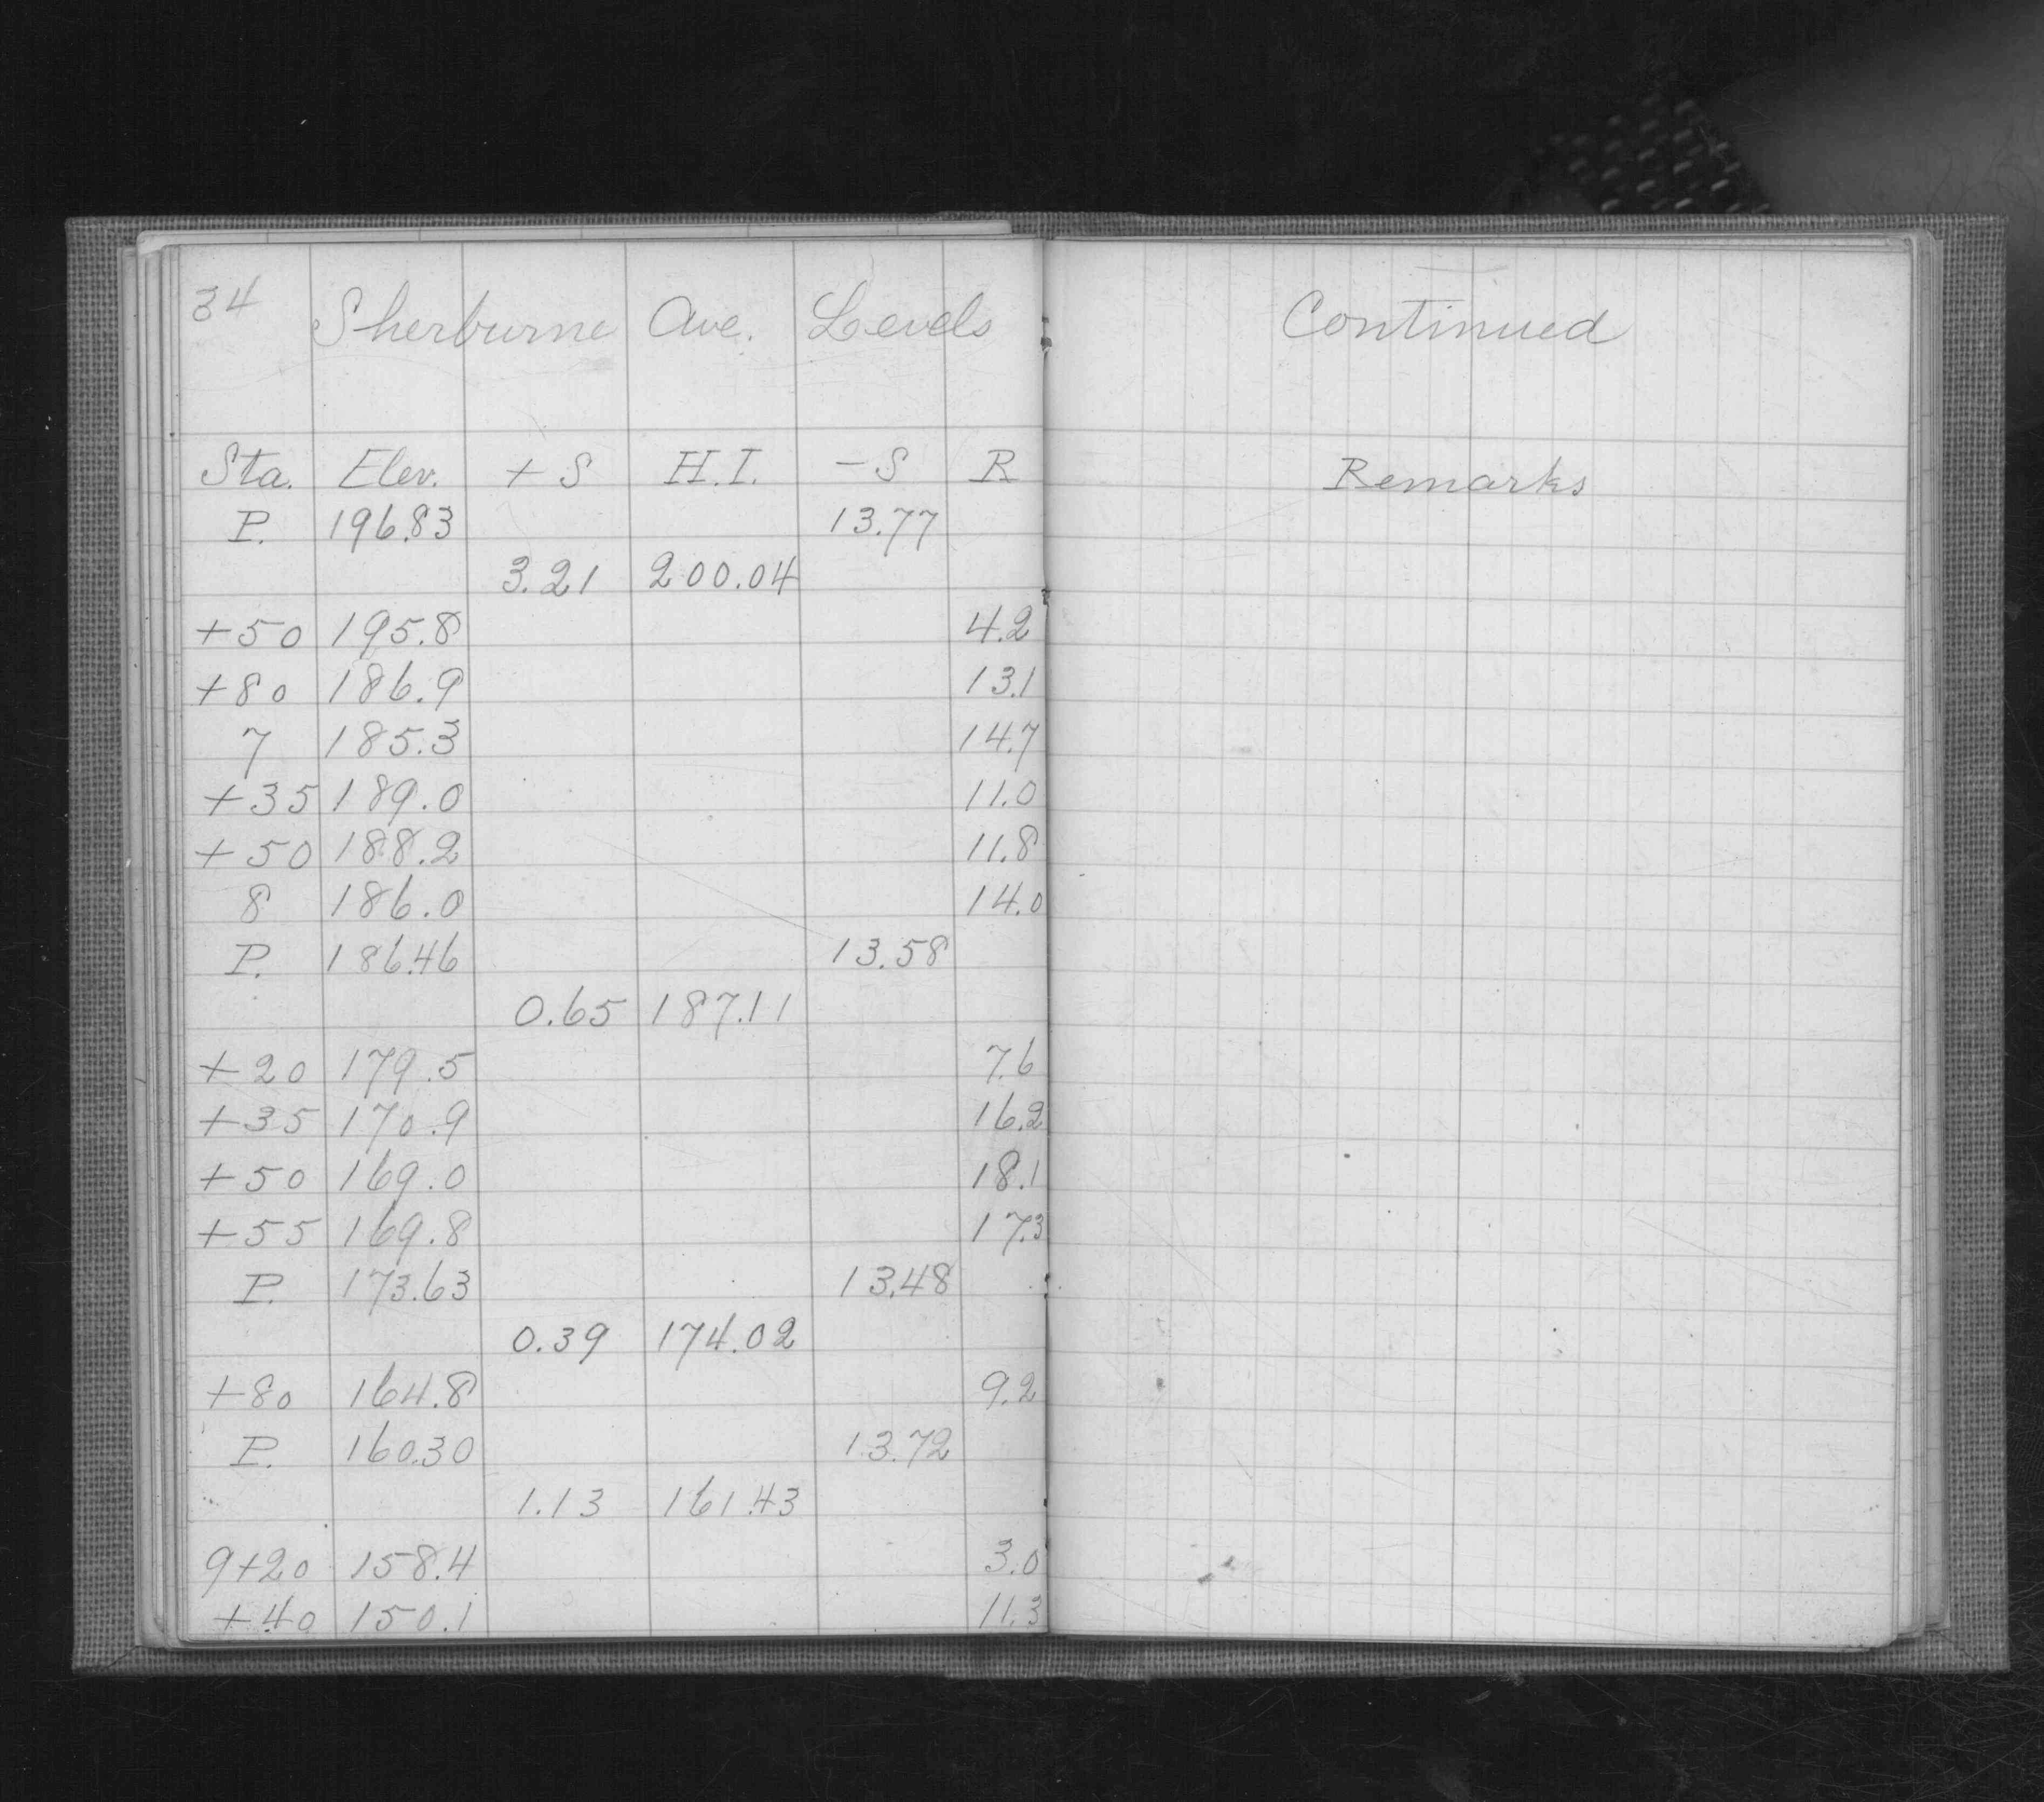 34 Sherburne Ave. Levels Continued
Sta. Elev. + S H.I. - S R Remarks
P. 196.83 13.77
3.21 200.04
+50 195.8 4.2
+80 186.9 13.1
7 185.3 14.7
+35 189.0 11.0
+50 188.2 11.8
8 186.0 14.0
P. 186.46 13.58
0.65 187.11
+20 179.5 7.6
+35 170.9 16.2
+50 169.0 18.1
+55 169.8 17.3
P. 173.63 13.48
0.39 174.02
+80 164.8 9.2
P. 160.30 13.72
1.13 161.43
9+20 158.4 3.0
+40 150.1 11.3